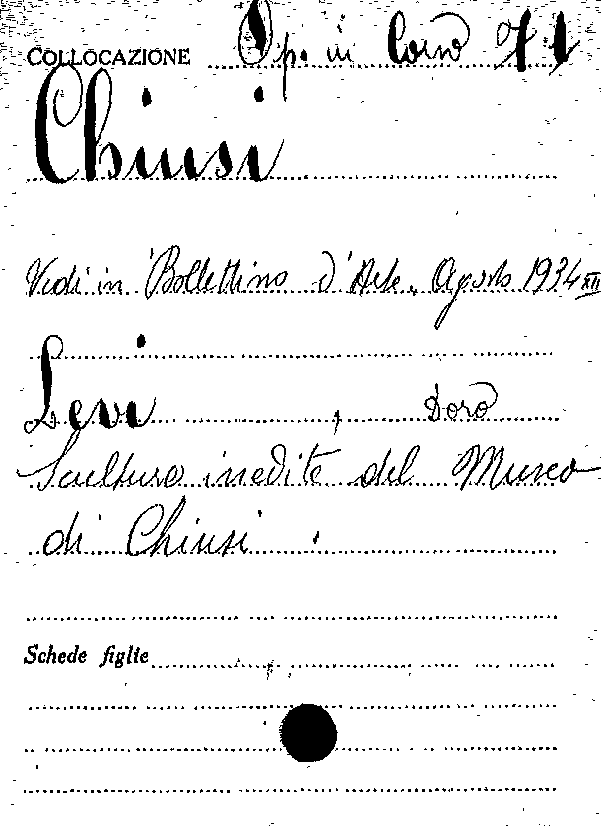 COLLOCAZIONE Op. in Corso 71
Chiusi
Vedi in Bollettino d'Arte. Agosto 1934 XII
Levi, Doro
Sculture inedite del Museo
di Chiusi.
Schede figlie